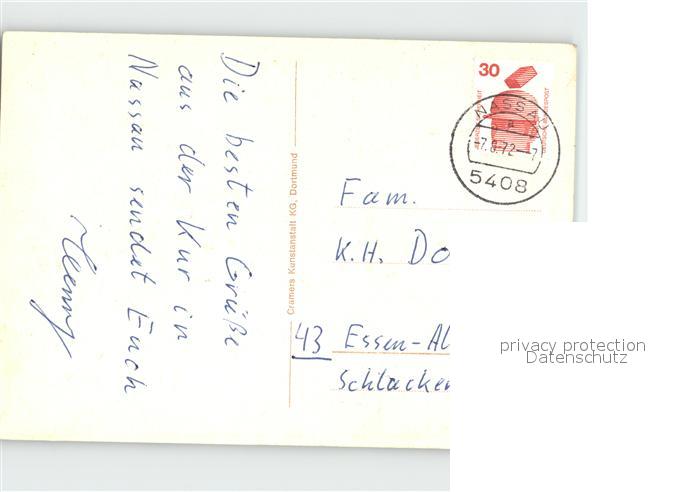 Die besten Grüße
aus der Kur in
Nassau sendet Euch
Henny
Cramers Kunstanstalt KG, Dortmund
30
NASSAU
a
-7.8.72--7
5408
Fam.
K.H. Do
43 Essen-Al
Schlacken
privacy protection
Datenschutz